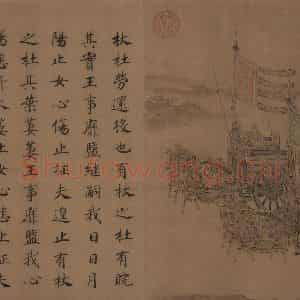 杕杜勞還役也有杕之杜有睆
其實王事靡盬繼嗣我日日月
陽止女心傷止征夫遑止有杕
之杜其葉萋萋王事靡盬我心
傷悲卉木萋止女心悲止征夫
Shufawang.Cn